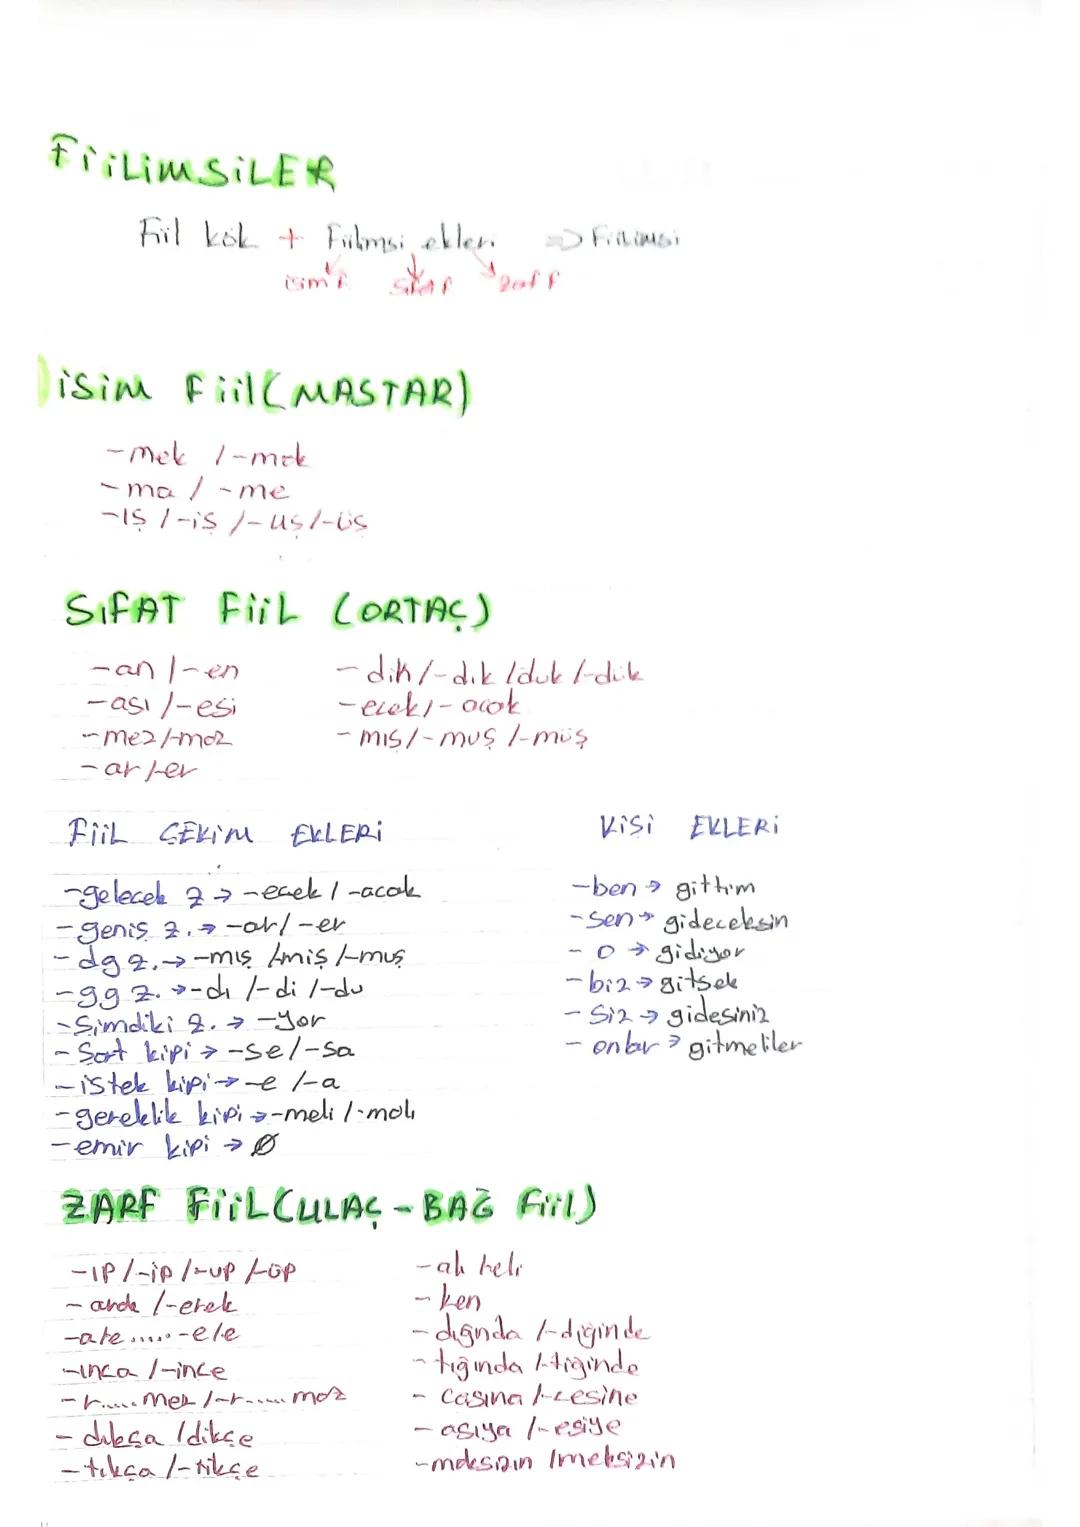 FiiLiMSiLER
Fiil kök + Fiilmsi ekleri => Fiilimsi
isim f sıfat f zarf f
isim Fiil (MASTAR)
-mek /-mak
-ma / -me
-ış /-iş /-uş/-üş
SıFAT FiiL (ORTAÇ)
-an /-en
-ası /-esi
-mez/-maz
-ar /-er
-dik/-dık /duk /-dük
-ecek/-acak
-mış/-muş /-müş
FiiL ÇEKiM EKLERi
-gelecek z → -ecek / -acak
-geniş z. → -ar/ -er
-dg z. → -mış /miş /-muş
-gg z. → -dı /-di /-du
-Şimdiki z. → -yor
-Şart kipi → -se/-sa
-istek kipi → -e /-a
-gereklik kipi → -meli /-malı
-emir kipi → Ø
KiŞi EKLERi
-ben → gittim
-sen → gideceksin
- o → gidiyor
-biz → gitsek
-Siz → gidesiniz
- onlar → gitmeliler
ZARF FiiL (ULAÇ - BAĞ Fiil)
-ıp /-ip /-up /-üp
-arak /-erek
-a/e ..... -e/e
-ınca /-ince
-r..... mez /-r..... maz
-dıkça /dikçe
-tıkça /-tikçe
-alı /-eli
-ken
-dığında /-diğinde
-tığında /-tiğinde
- casına /-cesine
-asıya /-esiye
-maksızın /meksizin